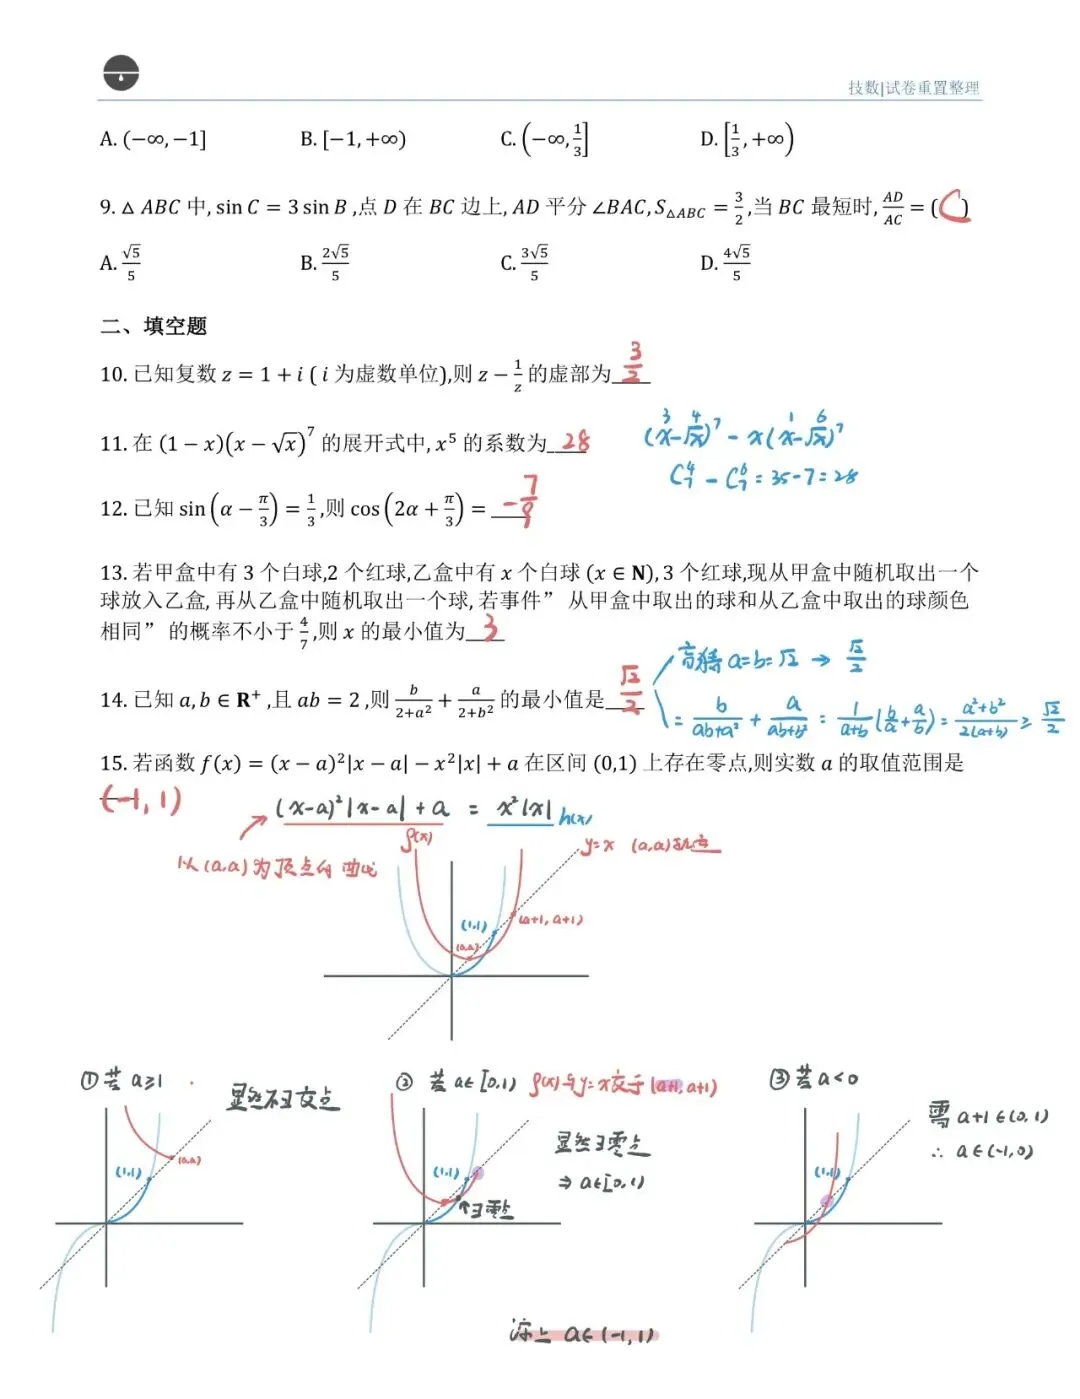 技数|试卷重置整理
A. (−∞, −1] B. [−1, +∞) C. (−∞, 1/3] D. [1/3, +∞)
9. △ ABC 中, sin C = 3 sin B ,点 D 在 BC 边上, AD 平分 ∠BAC, S△ABC = 3/2 ,当 BC 最短时, AD/AC = ( C )
A. √5/5 B. 2√5/5 C. 3√5/5 D. 4√5/5
二、填空题
10. 已知复数 z = 1 + i ( i 为虚数单位),则 z − 1/z 的虚部为 3/2
11. 在 (1 − x)(x − √x)^7 的展开式中, x^5 的系数为 28
(x^3 − √x^4)^7 − x(x^1 − √x^6)^7
C_7^4 − C_7^6 = 35 − 7 = 28
12. 已知 sin(α − π/3) = 1/3 ,则 cos(2α + π/3) = −7/9
13. 若甲盒中有 3 个白球,2 个红球,乙盒中有 x 个白球 (x ∈ N), 3 个红球,现从甲盒中随机取出一个
球放入乙盒, 再从乙盒中随机取出一个球, 若事件” 从甲盒中取出的球和从乙盒中取出的球颜色
相同” 的概率不小于 4/7 ,则 x 的最小值为 3
14. 已知 a, b ∈ R⁺ ,且 ab = 2 ,则 b/(2+a²) + a/(2+b²) 的最小值是 √2/2
a=b=√2 → √2/2
= b/(ab+a²) + a/(ab+b²) = 1/(a+b) (b/a + a/b) = (a²+b²)/(2(a+b)) ≥ √2/2
15. 若函数 f(x) = (x − a)²|x − a| − x²|x| + a 在区间 (0,1) 上存在零点,则实数 a 的取值范围是
(-1, 1)
(x-a)²|x-a| + a = x²|x|
h(x)
以(a,a)为顶点的曲线
y=x
(1,1)
(a,a)
(a+1, a+1)
① 若 a≥1
显然不∃交点
(a,a)
(1,1)
② 若 a∈[0,1)
与y=x交于(a+1, a+1)
显然∃零点
⇒ a∈[0,1)
(1,1)
↑∃零点
③ 若 a<0
需 a+1∈(0,1)
∴ a∈(-1,0)
(1,1)
综上 a∈(-1,1)